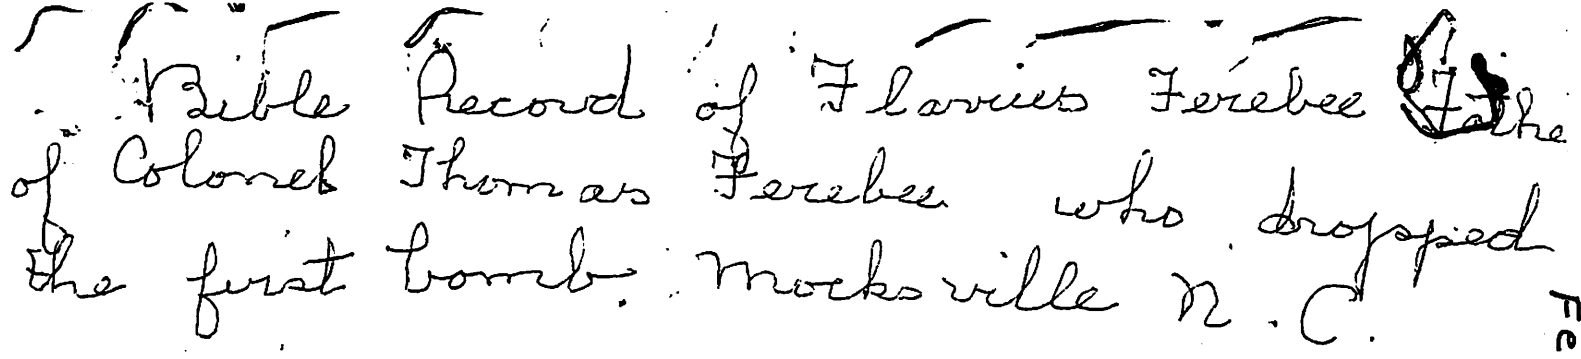 Bible Record of Flavius Ferebee Fathe
of Colonel Thomas Ferebee who dropped
the first bomb. Mocksville N.C.
Fe